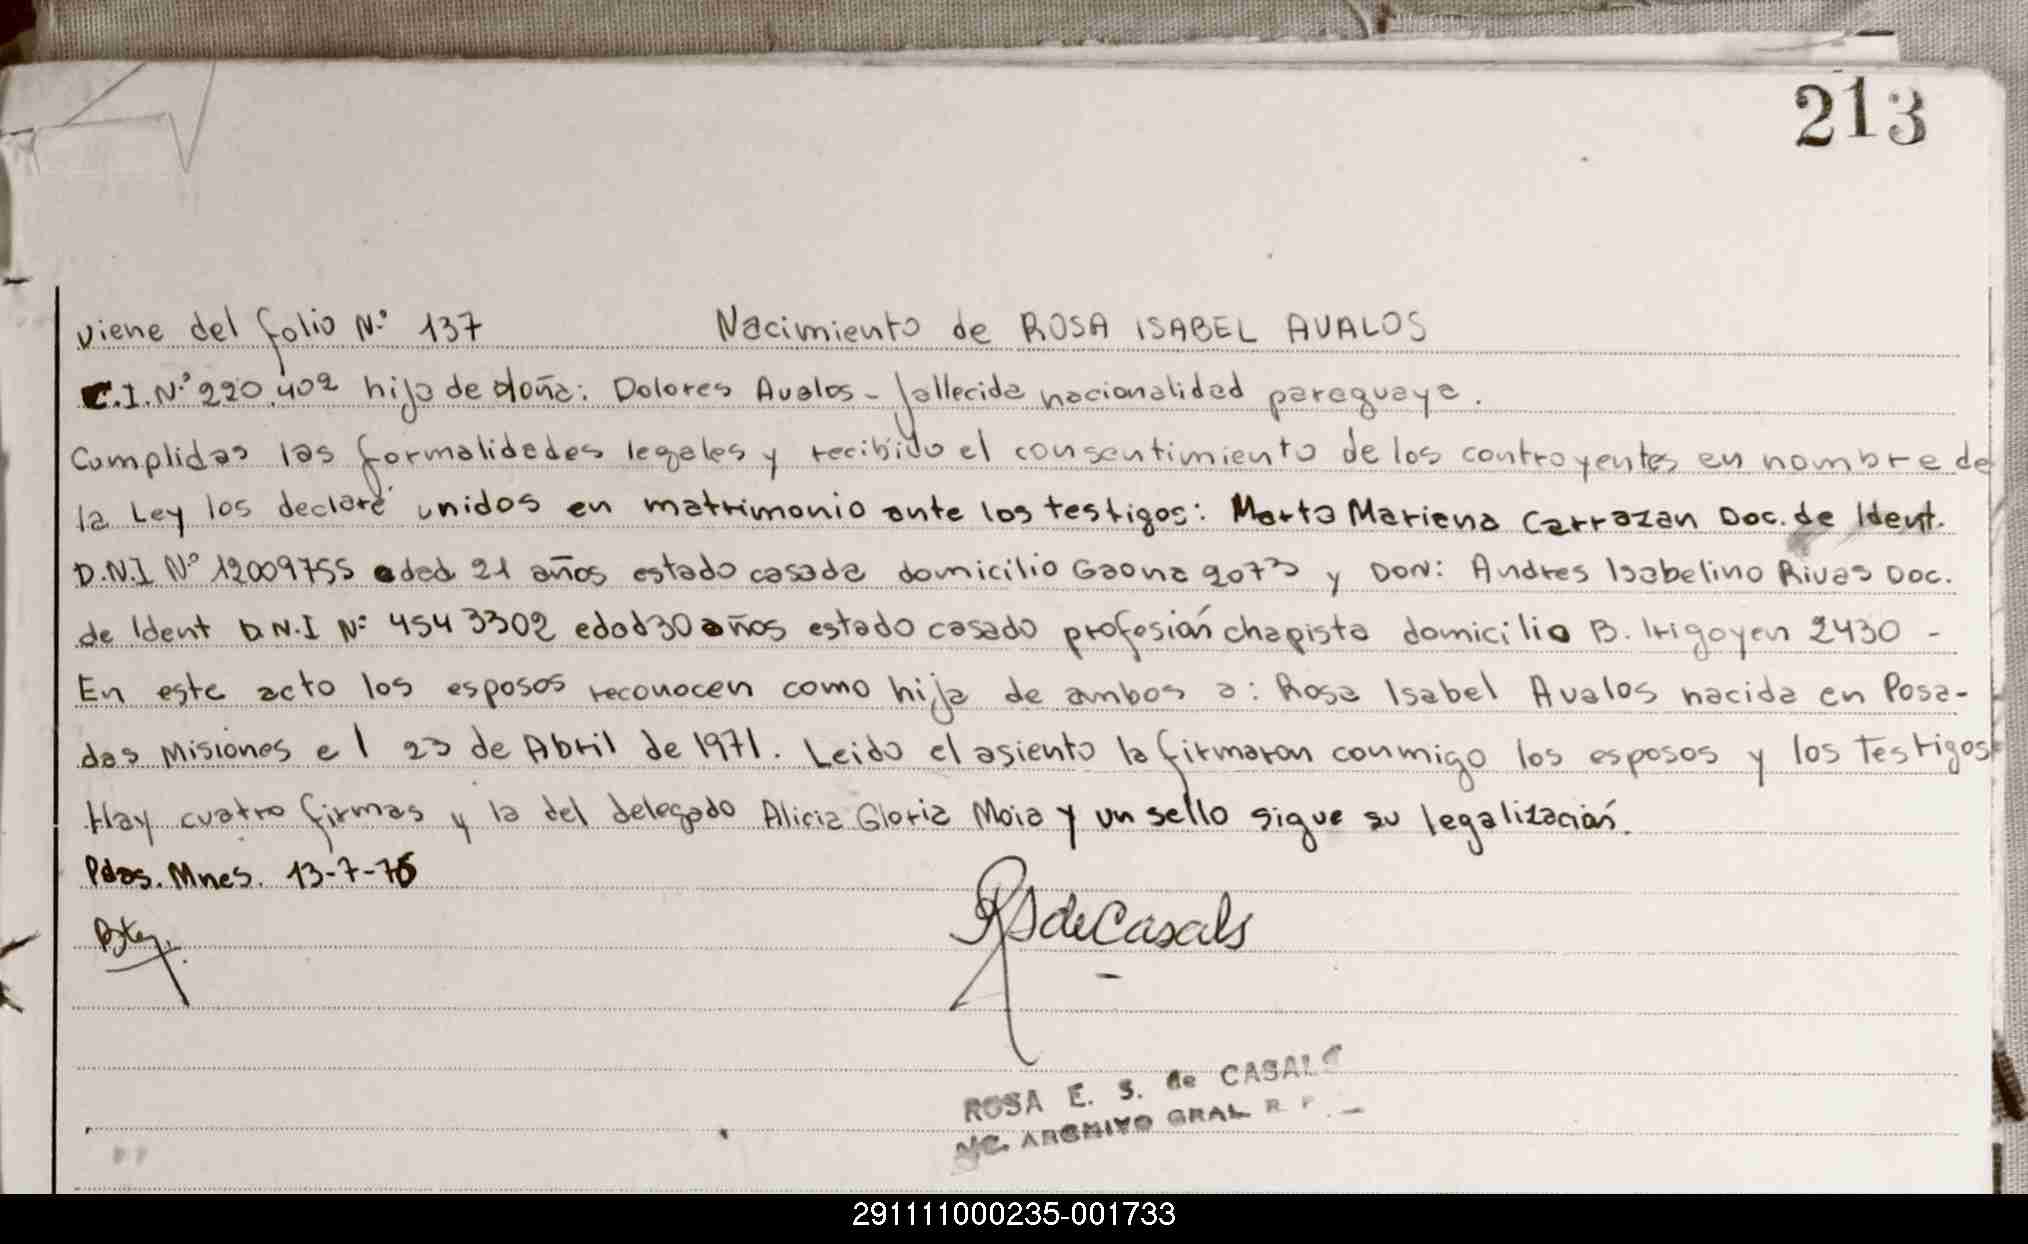 213
viene del folio N.º 137 Nacimiento de ROSA ISABEL AVALOS
C.I.N.º 220.402 hija de doña: Dolores Avalos - fallecida nacionalidad paraguaya.
Cumplidas las formalidades legales y recibido el consentimiento de los contrayentes en nombre de
la Ley los declaré unidos en matrimonio ante los testigos: Marta Mariena Carrazan Doc. de Ident.
D.N.I Nº 12009755 edad 21 años estado casada domicilio Gaona 2073 y Don: Andres Isabelino Rivas Doc.
de Ident D.N.I Nº 4543302 edad 30 años estado casado profesión chapista domicilio B. Irigoyen 2430 -
En este acto los esposos reconocen como hija de ambos a: Rosa Isabel Avalos nacida en Posa-
das Misiones el 23 de Abril de 1971. Leido el asiento la firmaron conmigo los esposos y los Testigos
Hay cuatro firmas y la del delegado Alicia Gloria Moia y un sello sigue su legalización.
Pdas. Mnes. 13-7-76
RS de Casals
ROSA E. S. de CASALS
ARCHIVO GRAL R. P.
291111000235-001733